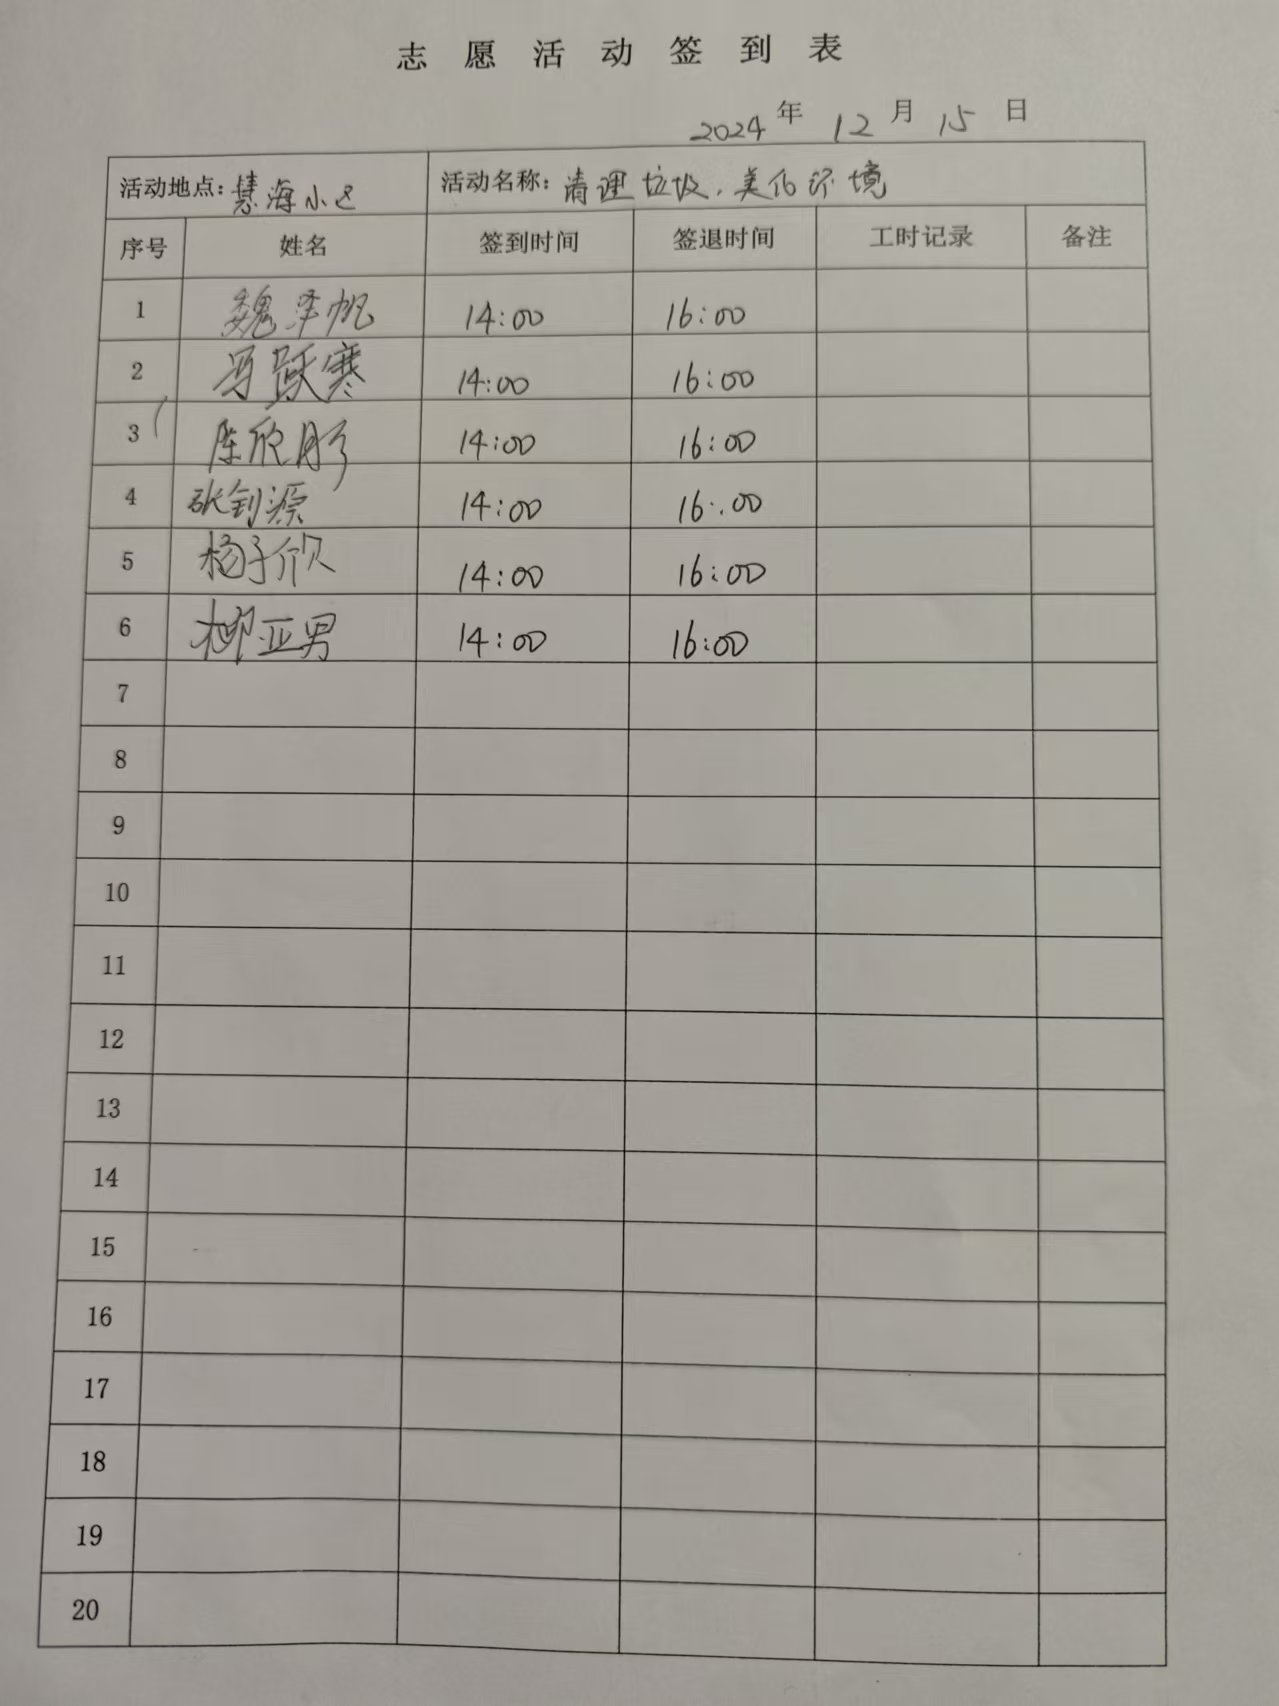 志愿活动签到表
2024年12月15日
活动地点：慧海小区 活动名称：清理垃圾，美化环境
序号 姓名 签到时间 签退时间 工时记录 备注
1 魏泽帆 14:00 16:00
2 冯跃寒 14:00 16:00
3 陈欣彤 14:00 16:00
4 张钊源 14:00 16:00
5 杨子欣 14:00 16:00
6 柳亚男 14:00 16:00
7
8
9
10
11
12
13
14
15
16
17
18
19
20